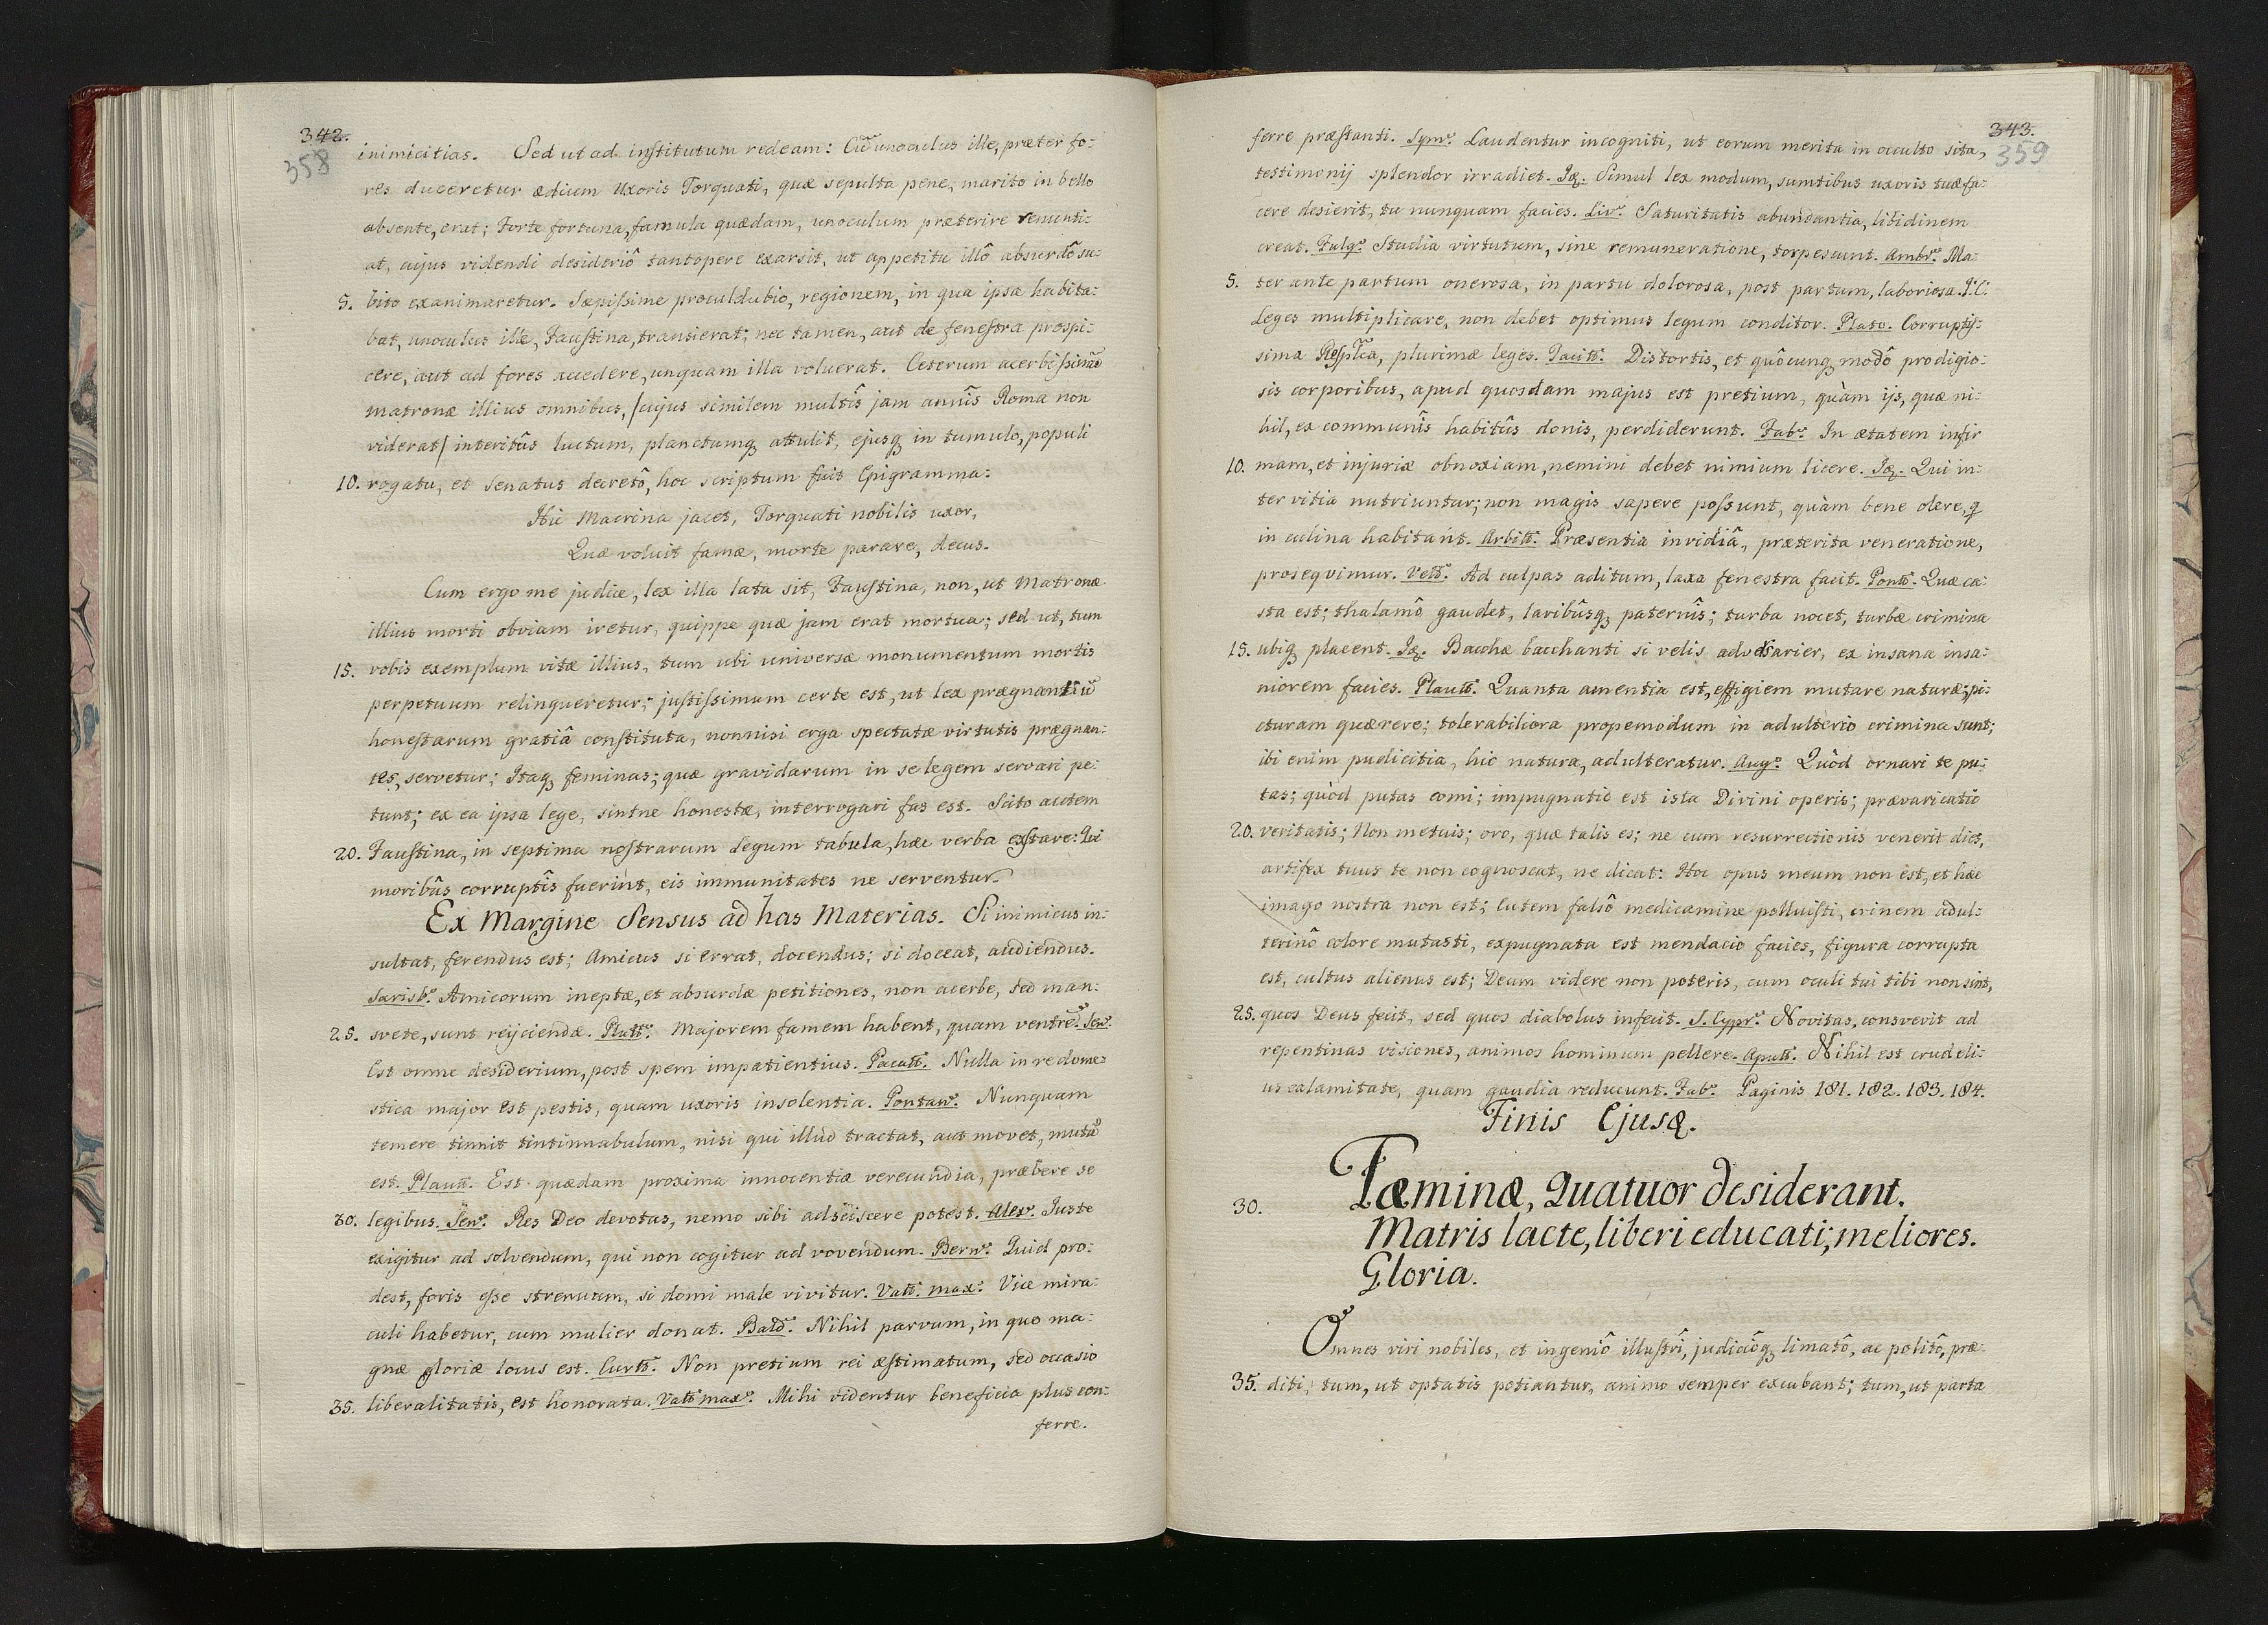 342.
358
inimicitias. Sed ut ad institutum redeam: Cũ unoculus ille, præter fo:
res duceretur ædium Uxoris Torquati, quæ sepulta pene, marito in bello
absente, erat; Forte fortuna, famula quædam, unoculum præterire renunti:
at, cujus videndi desideriô tantopere exarsit, ut appetitu illô absurdô su:
5. bito exanimaretur. Sæpissime proculdubio, regionem, in qua ipsa habita:
bat, unoculus ille, Faustina, transierat; nec tamen, aut de fenestra prospi:
cere, aut ad fores accedere, unquam illa voluerat. Ceterum acerbissimũ
matronæ illius omnibus, /cujus similem multîs jam annîs Roma non
viderat/ interitûs luctum, planctumq attulit, ejusq in tumulo, populi
10. rogatu, et Senatus decretô, hoc scriptum fuit Epigramma:
Hic Macrina jacet, Torquati nobilis uxor,
Quæ voluit famæ, morte parare, decus.
Cum ergo me judice, lex illa lata sit, Faustina, non, ut Matronæ
illius morti obviam iretur, quippe quæ jam erat mortua; sed ut, tum
15. vobis exemplum vitæ illius, tum ubi universæ monumentum mortis
perpetuum relinqueretur; justissimum certe est, ut lex prægnantiũ
honestarum gratiâ constituta, nonnisi erga spectatæ virtutis prægnan:
tes, servetur; Itaq feminas; quæ gravidarum in se legem servari pe:
tunt; ex ea ipsa lege, sintne honestæ, interrogari fas est. Scito autem
20. Faustina, in septima nostrarum Legum tabula, hæc verba exstare: Qui
moribûs corruptîs fuerint, eis immunitates ne serventur.
Ex Margine Sensus ad has Materias. Si inimicus in:
sultat, ferendus est; Amicus si errat, docendus; si doceat, audiendus.
Sarisb9. Amicorum ineptæ, et absurdæ petitiones, non acerbe, sed man:
25. svete, sunt rejiciendæ. Plutt9. Majorem famem habent, quam ventrẽ. Sen9.
Est omne desiderium, post spem impatientius. Pacatt9. Nulla in re dome:
stica major est pestis, quam uxoris insolentia. Pontan9. Nunquam
temere tinnit tintinnabulum, nisi qui illud tractat, aut movet, mutũ
est. Plautt9. Est quædam proxima innocentiæ verecundia, præbere se
30. legibus. Sen9. Res Deo devotas, nemo sibi adsciscere potest. Alex9. Juste
exigitur ad solvendum, qui non cogitur ad vovendum. Bern9. Quid pro:
dest, foris esse strenuum, si domi male vivitur. Vall9. max9. Vice mira:
culi habetur, cum mulier donat. Bald9. Nihil parvum, in quo ma:
gnæ gloriæ locus est. Curtt9. Non pretium rei æstimatum, sed occasio
35. liberalitatis, est honorata. Vall9 max9. Mihi videntur beneficia plus con:
ferre.
343.
359
ferre præstanti. Sym9. Laudentur incogniti, ut eorum merita in occulto sita,
testimonij splendor irradiet. Iq. Simul lex modum, sumtibus uxoris tuæ fa:
cere desierit, tu nunquam facies. Liv9. Saturitatis abundantia, libidinem
creat. Fulg9. Studia virtutum, sine remuneratione, torpescunt. Ambr9. Ma:
5. ter ante partum onerosa, in partu dolorosa, post partum, laboriosa. I:C:
Leges multiplicare, non debet optimus legum conditor. Plato. Corruptis:
sima Resplica, plurimæ leges. Tacitt9. Distortis, et quôcunq modô prodigio:
sis corporibus, apud quosdam majus est pretium, quàm ijs, quæ ni:
hil, ex communîs habitûs donis, perdiderunt. Fab9. In ætatem infir
10. mam, et injuriæ obnoxiam, nemini debet nimium licere. Iq. Qui in:
ter vitia nutriuntur; non magis sapere possunt, quàm bene olere, q
in culina habitant. Arbitt9. Præsentia invidiâ, præterita veneratione,
prosequimur. Vell9. Ad culpas aditum, laxa fenestra facit. Pont9. Quæ ca:
sta est; thalamô gaudet, laribûsq paternîs; turba nocet, turbæ crimina
15. ubiq placent. Iq. Bacchæ bacchanti si velis adversarier, ex insana insa:
niorem facies. Plautt9. Quanta amentia est, effigiem mutare naturæ; pi:
cturam quærere; tolerabiliora propemodum in adulterio crimina sunt;
ibi enim pudicitia, hic natura, adulteratur. Aug9. Quòd ornari te pu:
tas; quòd putas comi; impugnatio est ista Divini operis; prævaricatio
20. veritatis; Non metuis; oro, quæ talis es; ne cum resurrectionis venerit dies,
artifex tuus te non cognoscat, ne dicat: Hoc opus meum non est, et hæc
imago nostra non est; Cutem falsô medicamine polluisti, crinem adul:
terinô colore mutasti, expugnata est mendacio facies, figura corrupta
est, cultus alienus est; Deum videre non poteris, cum oculi tui tibi non sint,
25. quos Deus fecit, sed quos diabolus infecit. S. Cypr9. Novitas, consvevit ad
repentinas visiones, animos hominum pellere. Apull9. Nihil est crudeli:
us calamitate, quam gaudia reducunt. Fab9. Paginis 181. 182. 183. 184.
Finis Ejusq.
Fæminæ, Quatuor desiderant.
30.
Matris lacte, liberi educati; meliores.
Gloria.
Omnes viri nobiles, et ingeniô illustrî, judiciôq limatô, ac politô, præ
35. diti, tum, ut optatis potiantur, animo semper excubant; tum, ut parta